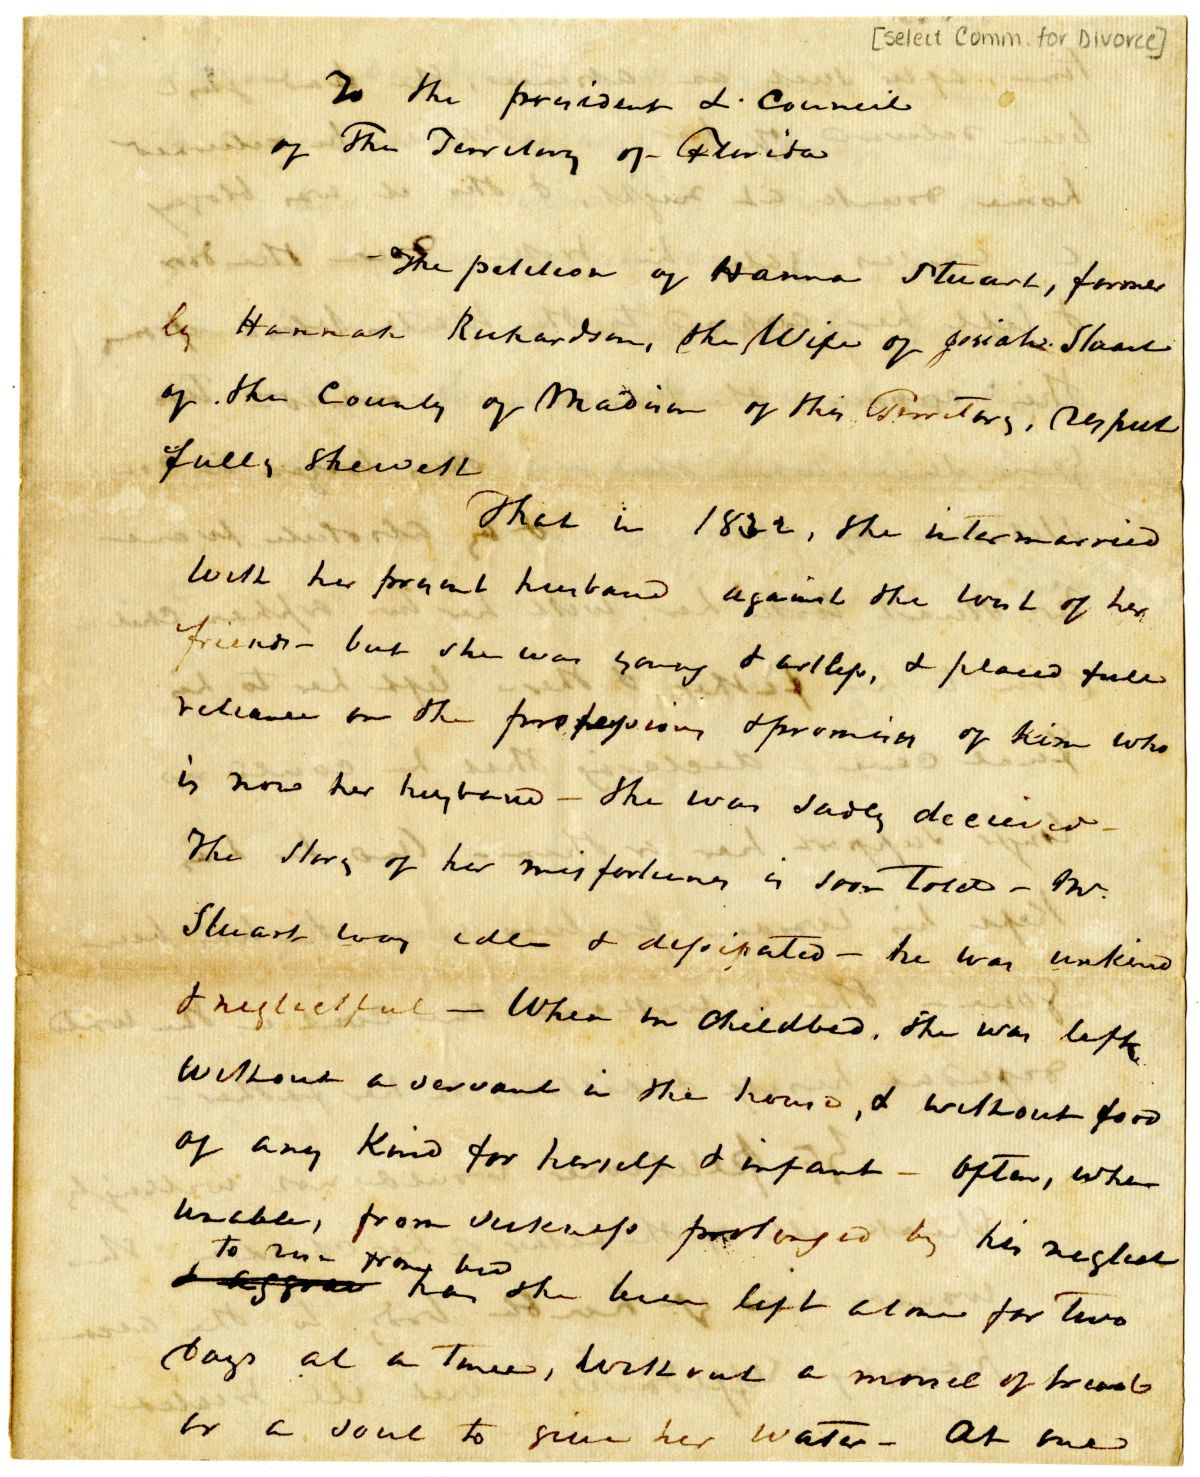 [Select Comm. for Divorce]
To the president & Council
of The Territory of Florida
The petition of Hanna Stuart, former
ly Hannah Richardson, the Wife of Josiah Stuart
of the County of Madison of this Territory, respect
fully sheweth
That in 1832, she intermarried
With her present husband against the wish of her
friends - but she was young & artless, & placed full
reliance on the professions & promises of him who
is now her husband - She was sadly decieved -
The story of her misfortunes is soon told - Mr.
Stuart was idle & dissipated - he was unkind
& neglectful - When in childbed, she was left
Without a servant in the house, & without food
of any Kind for herself & infant - Often, when
unable, from sickness prolonged by his neglect
to rise from bed
& aggrav has she been left alone for two
days at a time, Without a morsel of bread
or a soul to give her water - At one